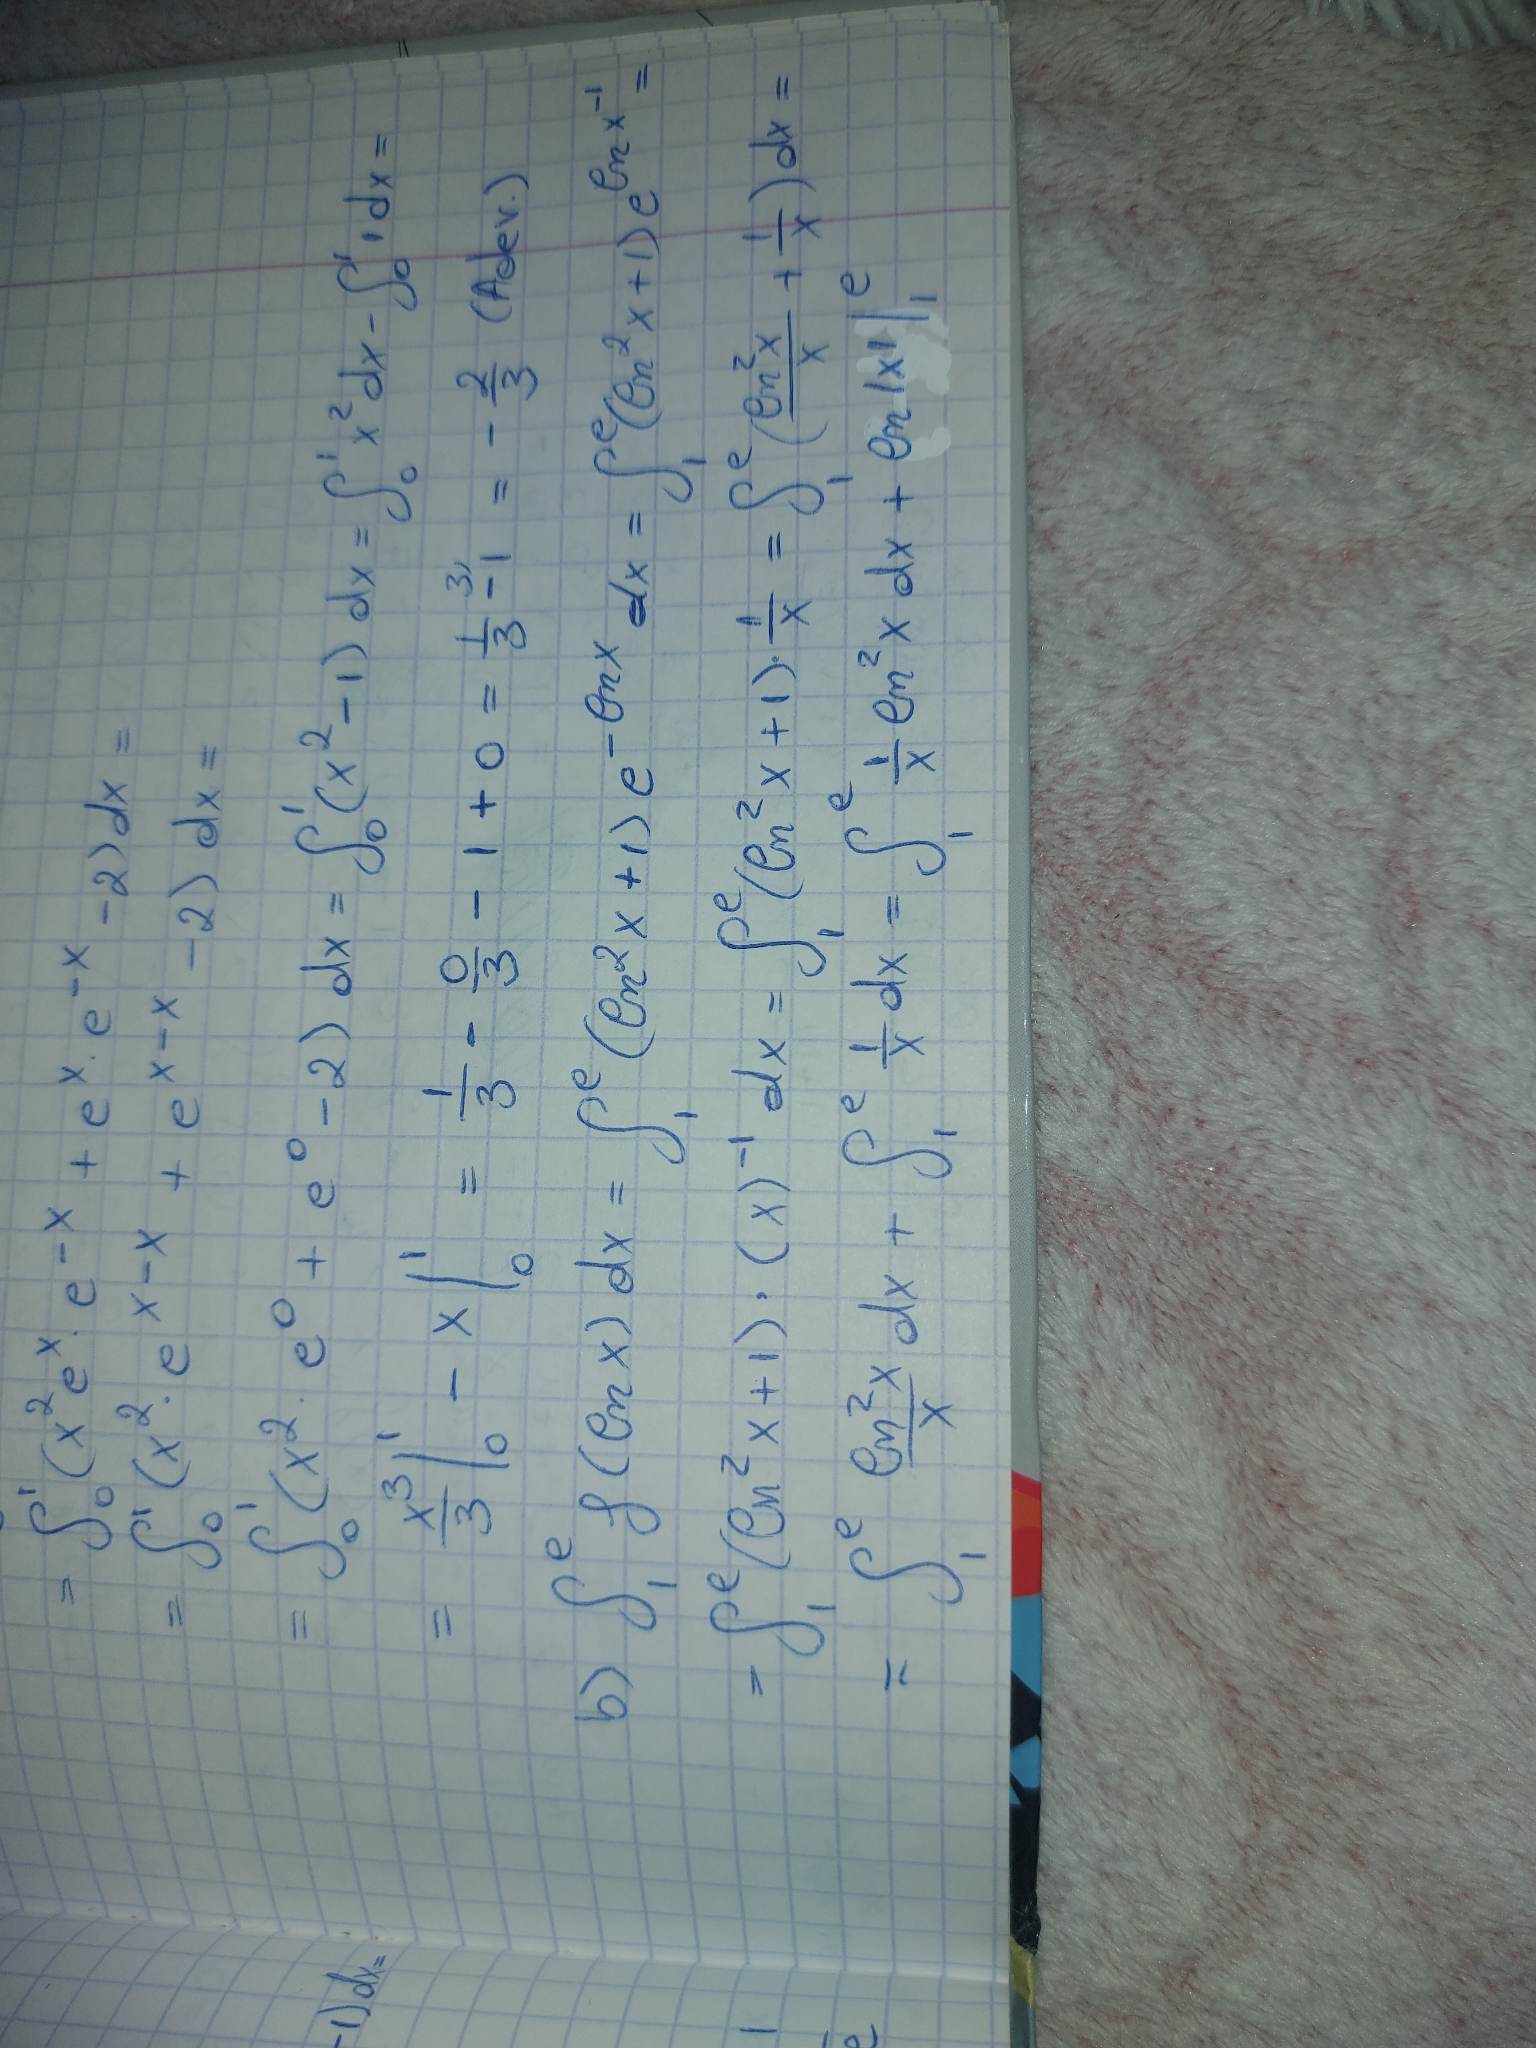 = ∫₀¹ (x² eˣ · e⁻ˣ + eˣ · e⁻ˣ - 2) dx =
= ∫₀¹ (x² · eˣ⁻ˣ + eˣ⁻ˣ - 2) dx =
= ∫₀¹ (x² · e⁰ + e⁰ - 2) dx = ∫₀¹ (x² - 1) dx = ∫₀¹ x² dx - ∫₀¹ 1 dx =
-1) dx =
= x³/3 |₀¹ - x |₀¹ = 1/3 - 0/3 - 1 + 0 = 1/3 - ³⁾1 = - 2/3 (Adev.)
b) ∫₁ᵉ f(ln x) dx = ∫₁ᵉ (ln²x + 1) e^(-ln x) dx = ∫₁ᵉ (ln²x + 1) e^(ln x⁻¹) =
= ∫₁ᵉ (ln²x + 1) · (x)⁻¹ dx = ∫₁ᵉ (ln²x + 1) · 1/x = ∫₁ᵉ (ln²x/x + 1/x) dx =
1
e
= ∫₁ᵉ ln²x/x dx + ∫₁ᵉ 1/x dx = ∫₁ᵉ 1/x ln²x dx + ln|x| |₁ᵉ